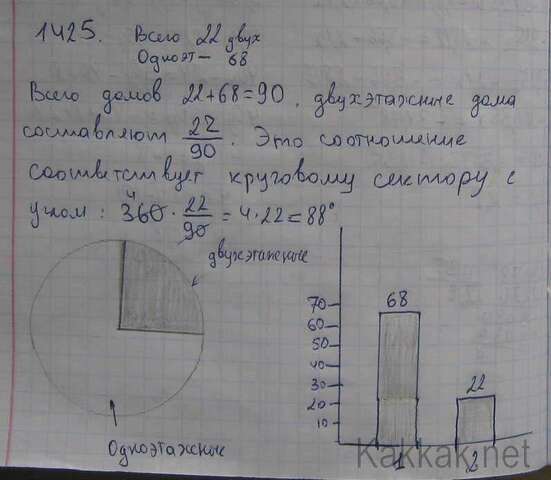 1425. Всего 22 двух
Одноэт – 68
Всего домов 22+68=90, двухэтажные дома
составляют 22/90. Это соотношение
соответствует круговому сектору с
углом: 360 · 22/90 = 4·22=88°
4
двухэтажные
Одноэтажные
70
60
50
40
30
20
10
68
22
1
2
Kakkak.net